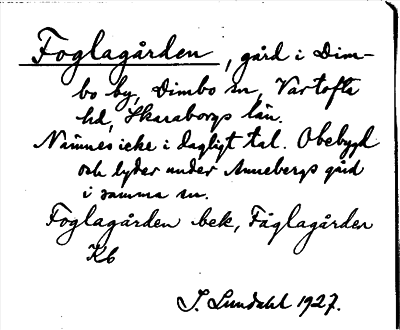 Foglagården, gård i Dim-
bo by, Dimbo sn, Vartofta
hd, Skaraborgs län.
Nämnes icke i dagligt tal. Obebygd
och lyder under Annebergs gård
i samma sn.
Foglagården bek, Fåglagården
Kb
J. Lundahl 1927.